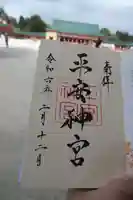 奉拝
平安神宮
令和六年二月十二日